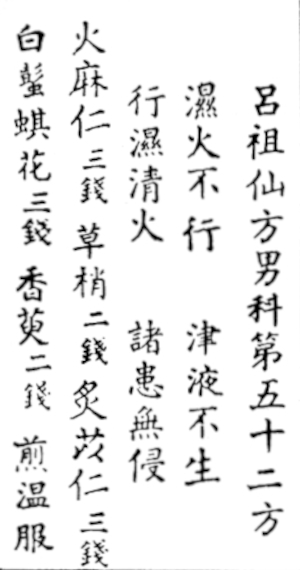 呂祖仙方男科第五十二方
濕火不行 津液不生
行濕清火 諸患無侵
火麻仁三錢 草梢二錢 炙苡仁三錢
白蟚蜞花三錢 香茰二錢 煎溫服